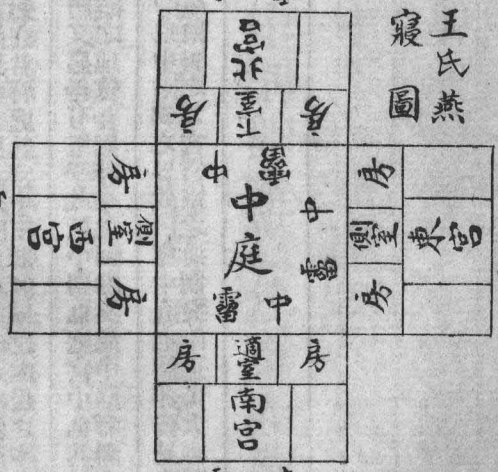 王氏燕
寢圖
北宮
房 下室 房
房 側室 房
西宮
中庭
中霤
中霤
中霤
房 側室 房
東宮
房 適室 房
南宮